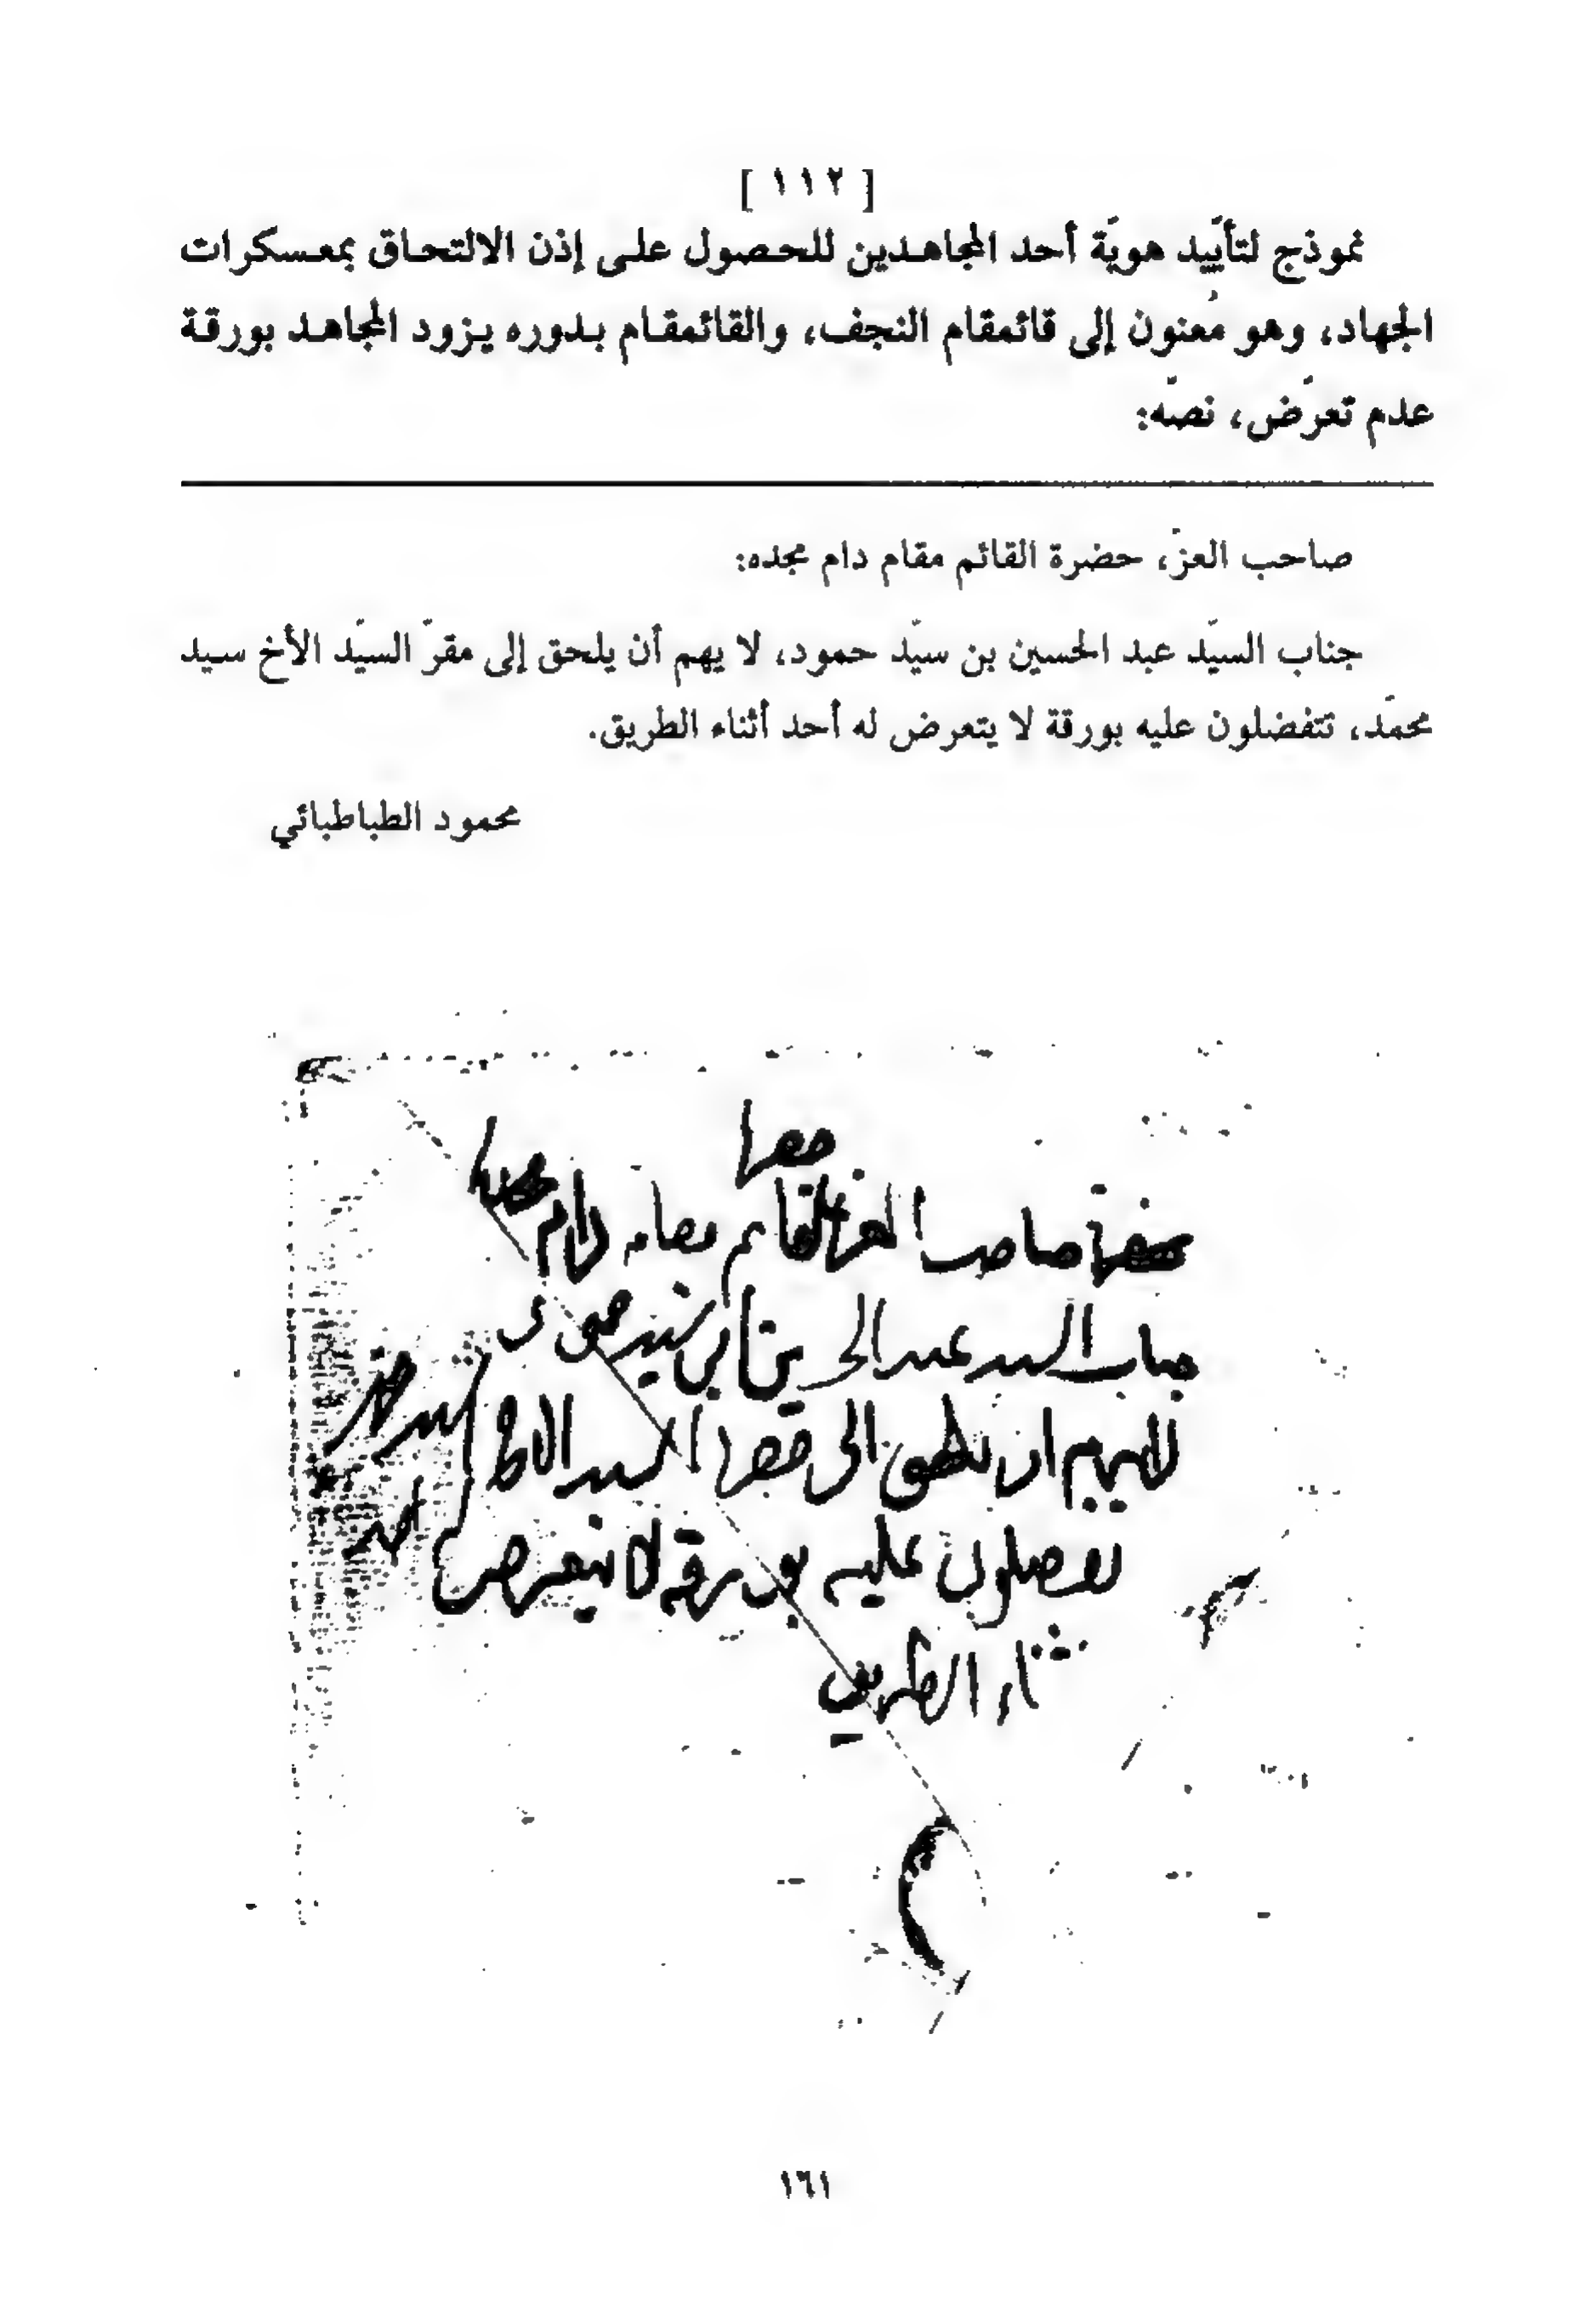 [ ١١٢ ]
نموذج لتأييد هويّة أحد المجاهدين للحصول على إذن الالتحاق بمعسكرات
الجهاد، وهو مُعنون إلى قائمقام النجف، والقائمقام بدوره يزود المجاهد بورقة
عدم تعرّض، نصّه:
صاحب العزّ، حضرة القائم مقام دام مجده:
جناب السيّد عبد الحسين بن سيّد حمود، لا يهم أن يلحق إلى مقرّ السيّد الأخ سيد
محمّد، تتفضلون عليه بورقة لا يتعرض له أحد أثناء الطريق.
محمود الطباطبائي
صاحب العز القائم مقام دام
جناب السيد عبد الحسين ابن سيد حمود
ان يلحق الى السيد الاخ سيد محمد
تفضلون عليه بورقه لا يتعرض له احد
اثناء الطريق
١٦١